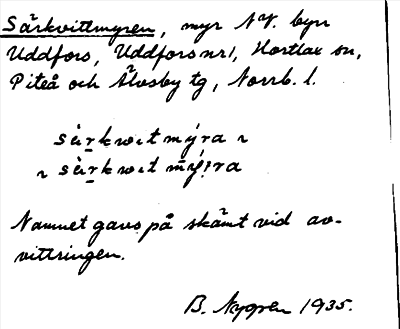 Särkvittmyren, myr NV. byn
Uddfors, Uddfors nr 1, Hortlax sn,
Piteå och Älvsby tg, Norrb. l.
sàrkwıtmýra ı
ı sàrkwıt mȳ́ra
Namnet gavs på skämt vid av-
vittringen.
B. Nygren 1935.